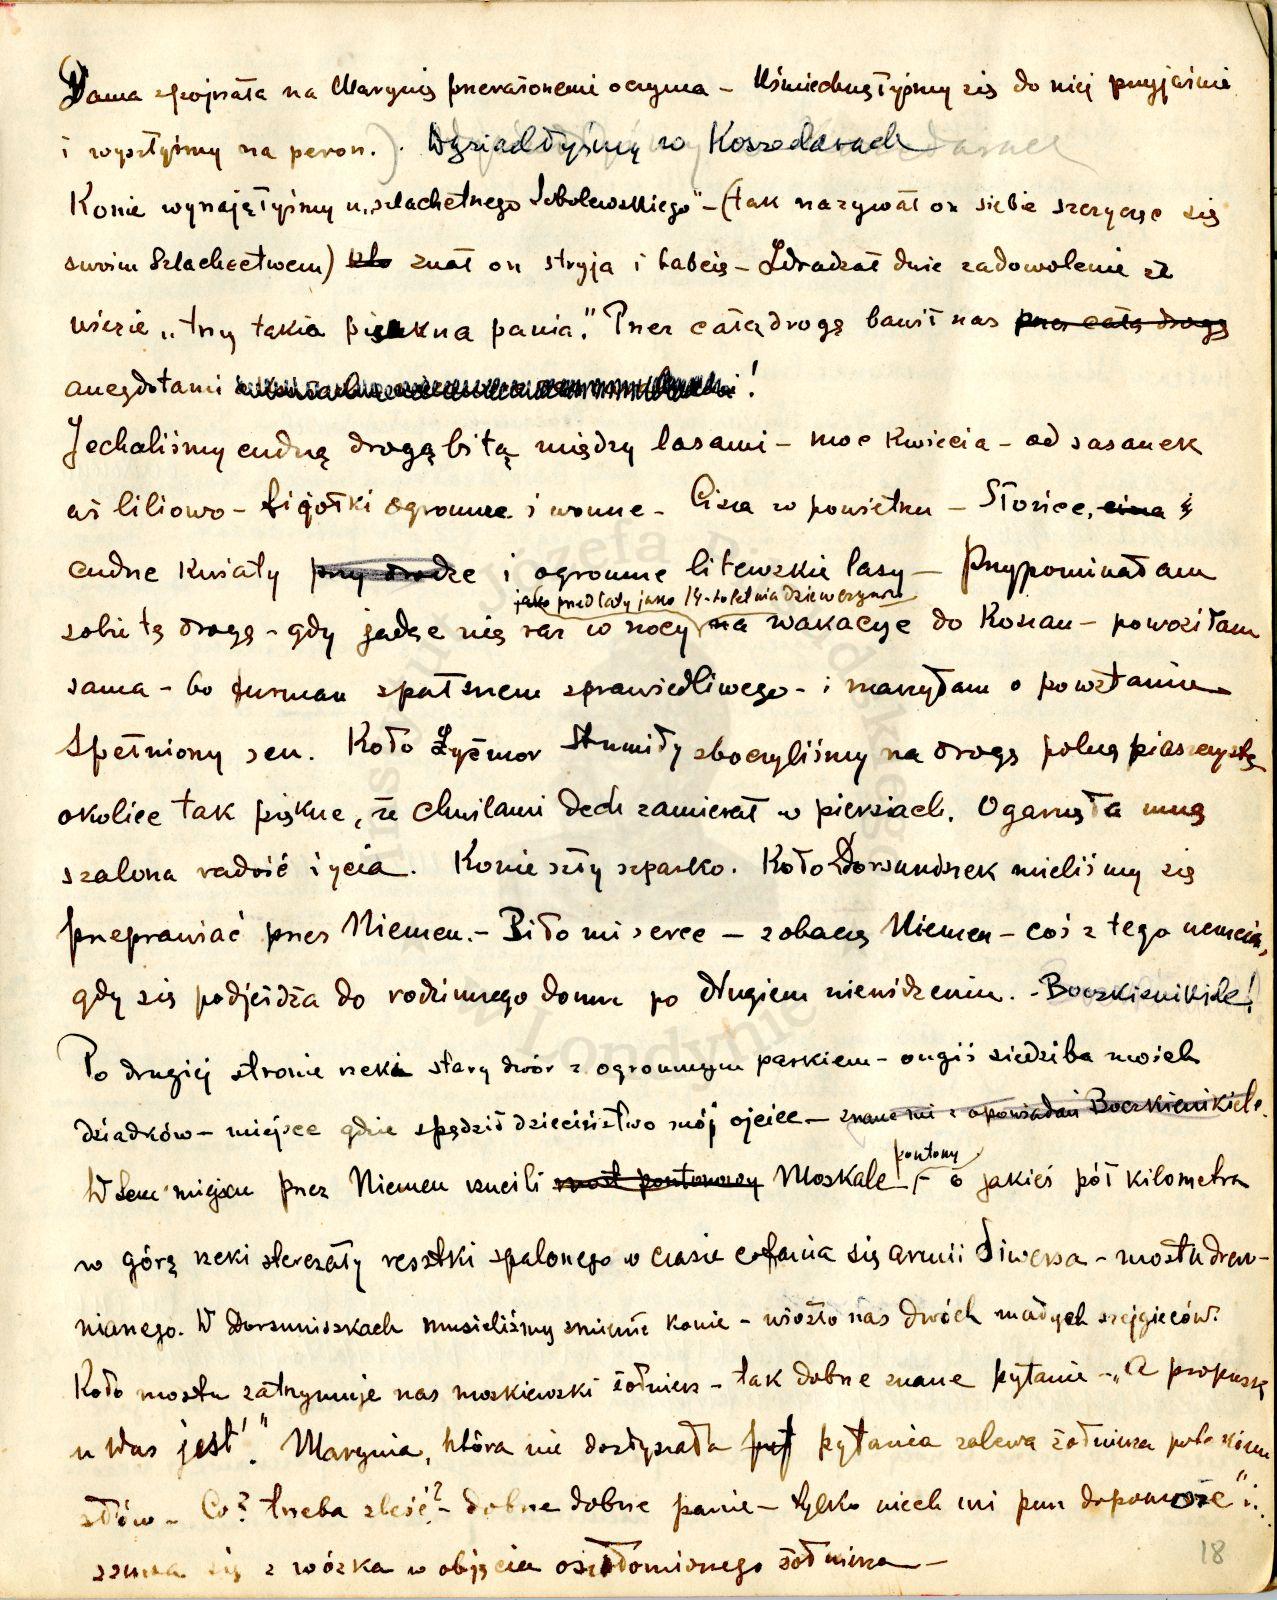 Dama spojrzała na Marynię przerażonemi oczyma – Uśmiechnęłyśmy się do niej przyjaźnie
i wyszłyśmy na peron.). Wysiadłyśmy w Koszedarach
Konie wynajęłyśmy u „szlachetnego Sobolewskiego" – (tak nazywał on siebie szczycąc się
swoim szlachectwem) znał on stryja i babcię – Zdradzał duże zadowolenie że
wiezie „trzy takie piękna pania." Przez całą drogę bawił nas przez całą drogę
anegdotami !
Jechaliśmy cudną drogą bitą między lasami – moc kwiecia – od sasanek
aż liliowo – fijołki ogromne i wonne – Cisza w powietrzu – Słońce, cisza i
cudne kwiaty przy drodze i ogromne litewskie lasy – Przypominałam
jako przed laty jako 14-to letnia dziewczynka
sobie tę drogę – gdy jadąc nią raz w nocy na wakacje do Kozian – powoziłam
sama – bo furman spał snem sprawiedliwego – i marzyłam o powstaniu –
Spełniony sen. Koło Żyżmor Strumiły zboczyliśmy na drogę polną piaszczystą
okolice tak piękne, że chwilami dech zamierał w piersiach. Ogarnęła mnę
szalona radość życia. Konie szły szparko. Koło Dorsuniszek mieliśmy się
przeprawiać przez Niemen. – Biło mi serce – zobaczę Niemen – coś z tego uczucia,
gdy się podjeżdża do rodzinnego domu po długiem niewidzeniu. – Boczkienikiele!
Po drugiej stronie rzeki stary dwór z ogromnym parkiem – ongiś siedziba moich
dziadków – miejsce gdzie spędził dzieciństwo mój ojciec – znane mi z opowiadań Boczkienikiele.
pontony
W tem miejscu przez Niemen rzucili most pontonowy Moskale – o jakieś pół kilometra
w górę rzeki sterczały resztki spalonego w czasie cofania się armii Siwersa – mostu drew-
nianego. W Dorsuniszkach musieliśmy zmienić konie – wiozło nas dwóch małych szejgieców.
Koło mostu zatrzymuje nas moskiewski żołnierz – tak dobrze znane pytanie – „A propusk
u Was jest'." Marynia, która nie dosłyszała pytania zalewa żołnierza potokiem
słów – Co? trzeba zleść? – dobrze dobrze panie – tylko niech mi pan dopomoże" i..
zsuwa się z wózka w objęcia oszołomionego żołnierza –
18